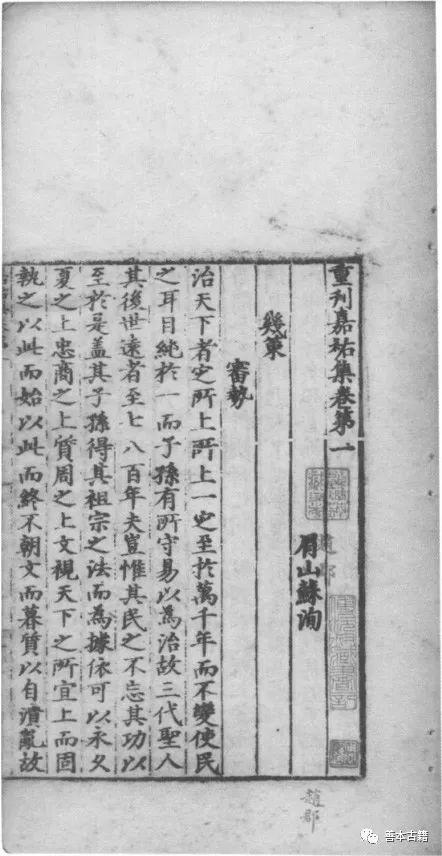 重刊嘉祐集卷第一
眉山蘇洵
幾策
審勢
治天下者定所上所上一定至於萬千年而不變使民
之耳目純於一而子孫有所守易以為治故三代聖人
其後世遠者至七八百年夫豈惟其民之不忘其功以
至於是盖其子孫得其祖宗之法而為據依可以永久
夏之上忠商之上質周之上文視天下之所宜上而固
執之以此而始以此而終不朝文而暮質以自潰亂故
趙郡
趙郡
善本古籍